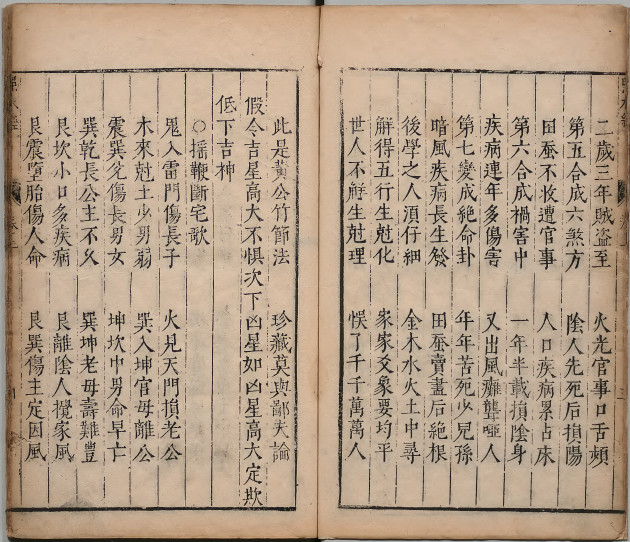 二歲三年賊盜至　火光官事口舌頻
第五合成六煞方　陰人先死后損陽
田蚕不收遭官事　人口疾病累占床
第六合成禍害中　一年半載損陰身
疾病連年多傷害　又出風癱聾啞人
第七變成絶命卦　年年苦死少兒孫
暗風疾病長生發　田蚕賣盡后絶根
後學之人須仔細　金木水火土中尋
解得五行生尅化　家家爻象要均平
世人不觧生尅理　悞了千千萬萬人
此是黃公竹節法　珍藏莫與鄙夫論
假令吉星高大不惧次下凶星如凶星高大定欺
低下吉神
○揺鞭斷宅歌
鬼入雷門傷長子　火見天門損老公
木來尅土少男弱　巽入坤宮母離公
震巽兌傷長男女　坤坎中男命早亡
巽乾長公主不久　巽坤老母壽難豐
艮坎小口多疾病　艮離陰人攪家風
艮震墮胎傷人命　艮巽傷主定因風